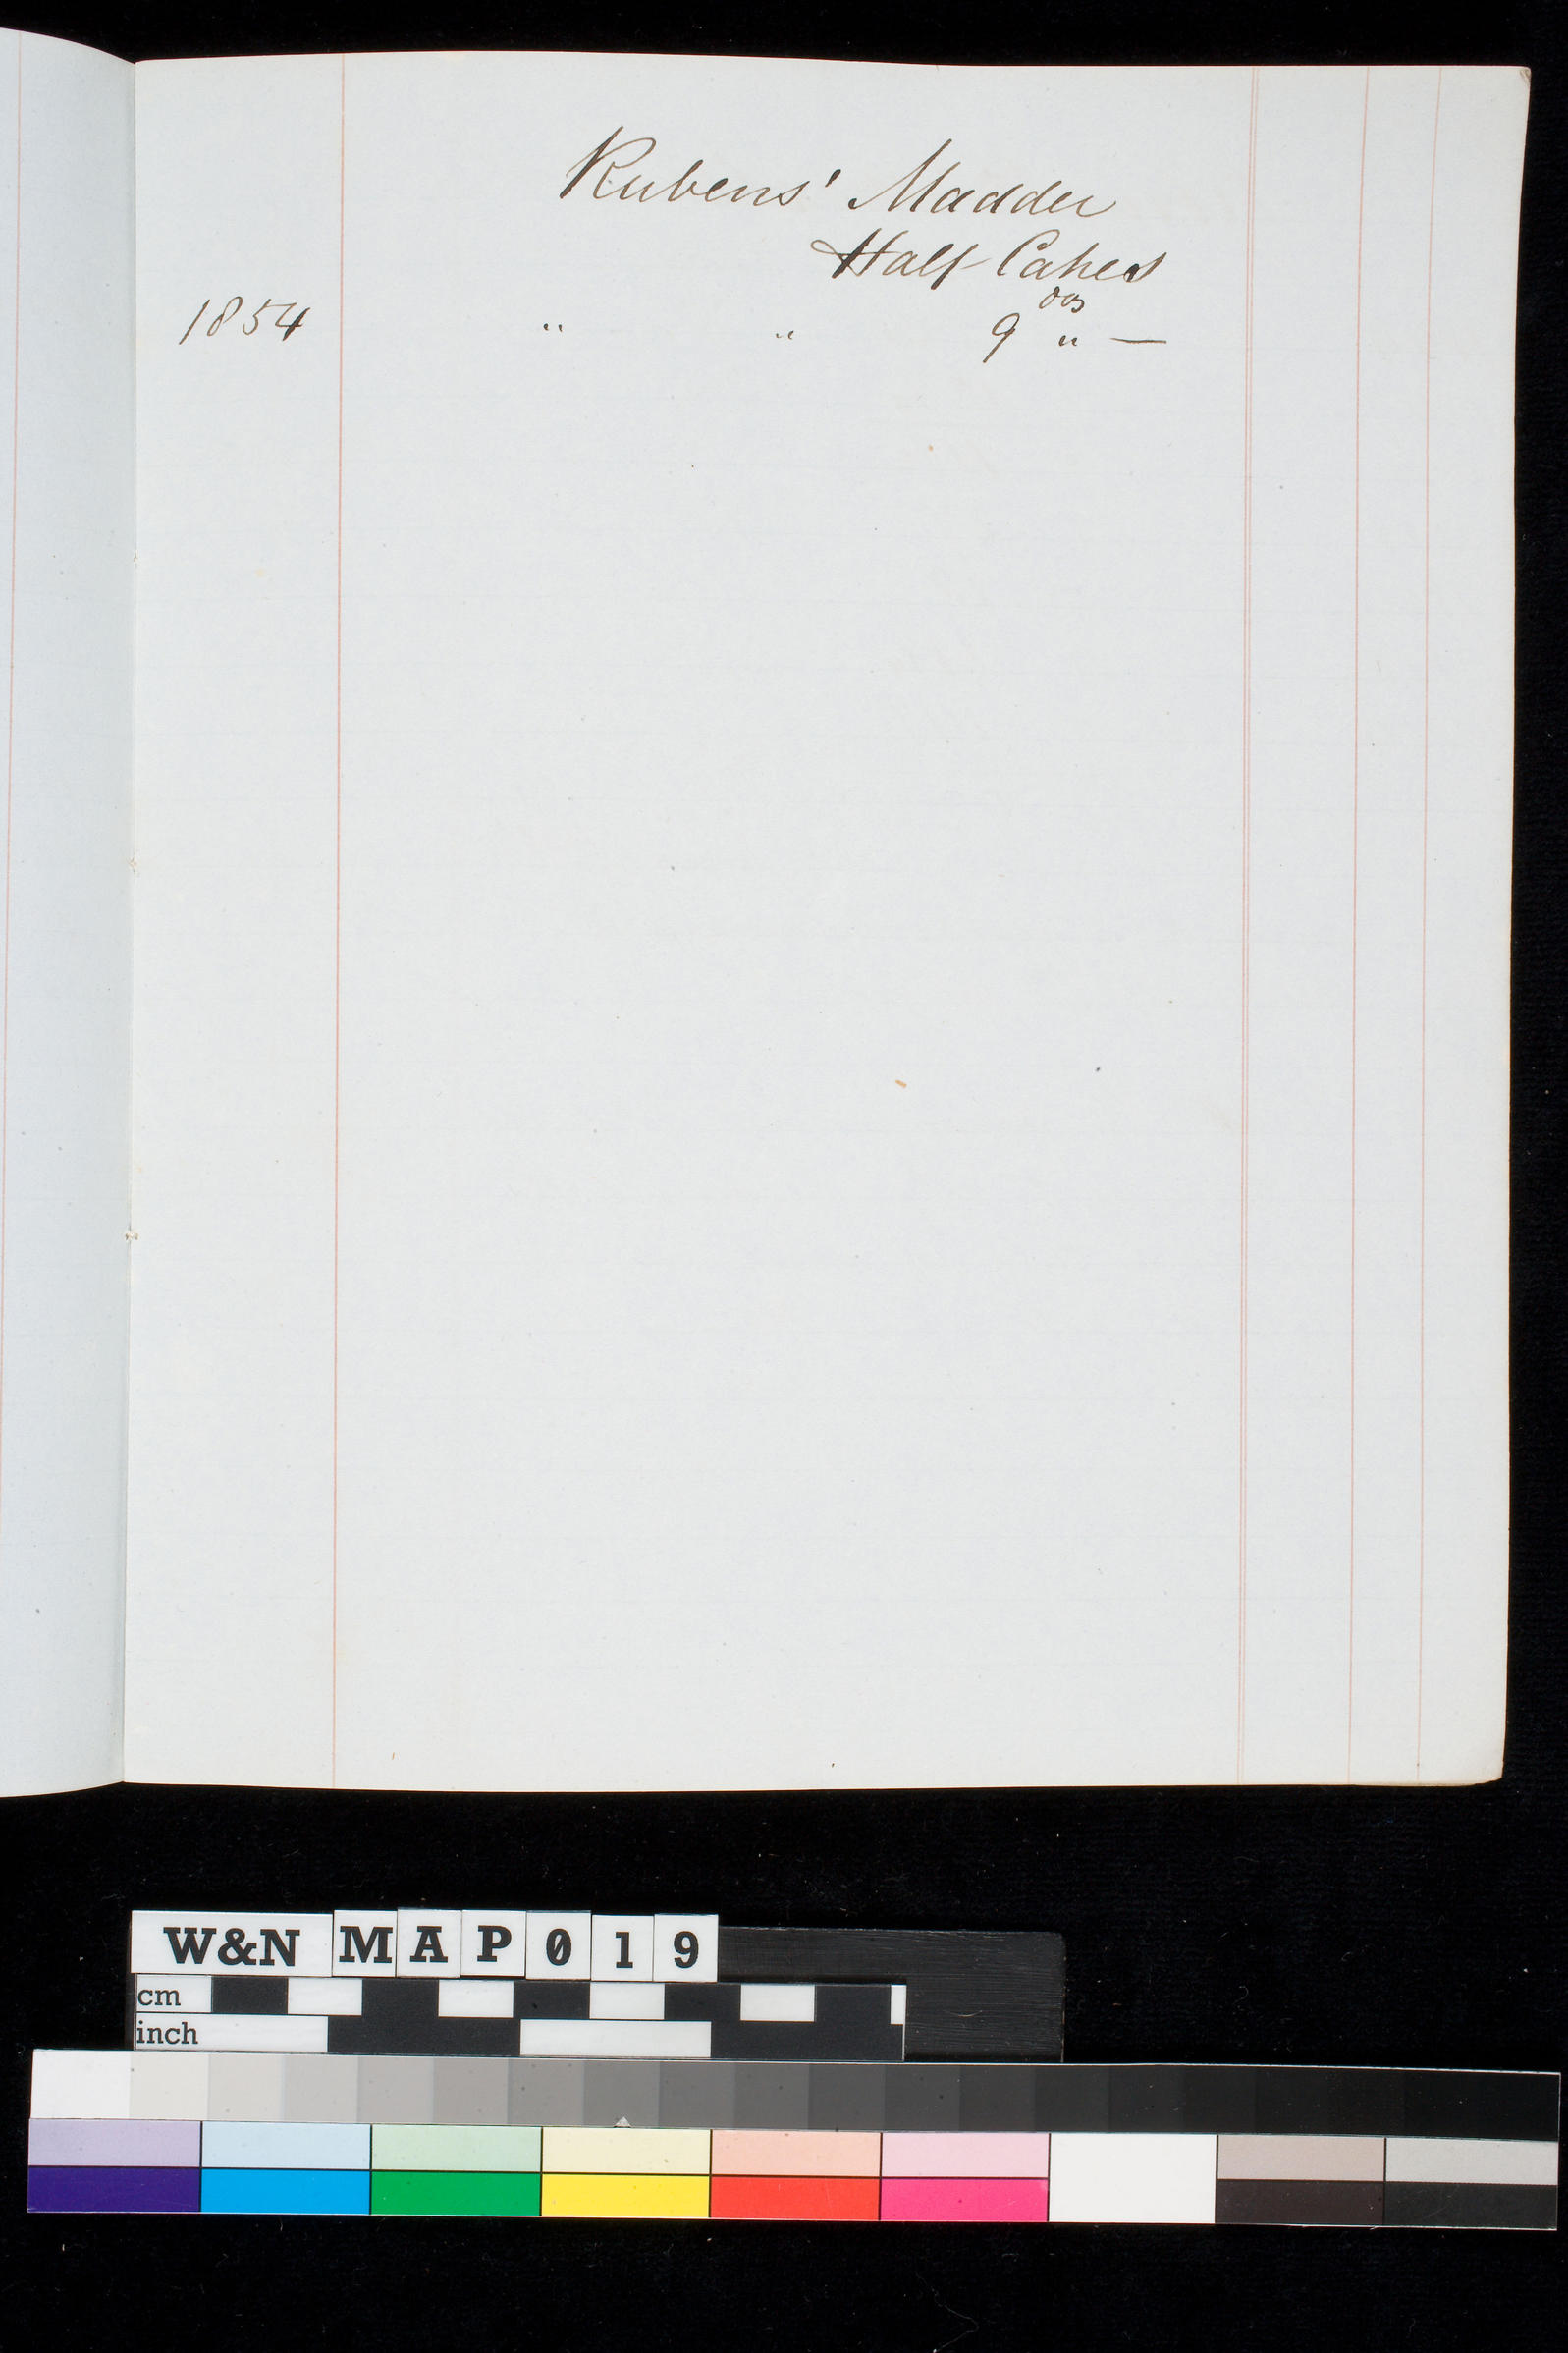 Rubens' Madder
Half Cakes
doz
1854 " " 9 " —
W&N MAP019
cm
inch